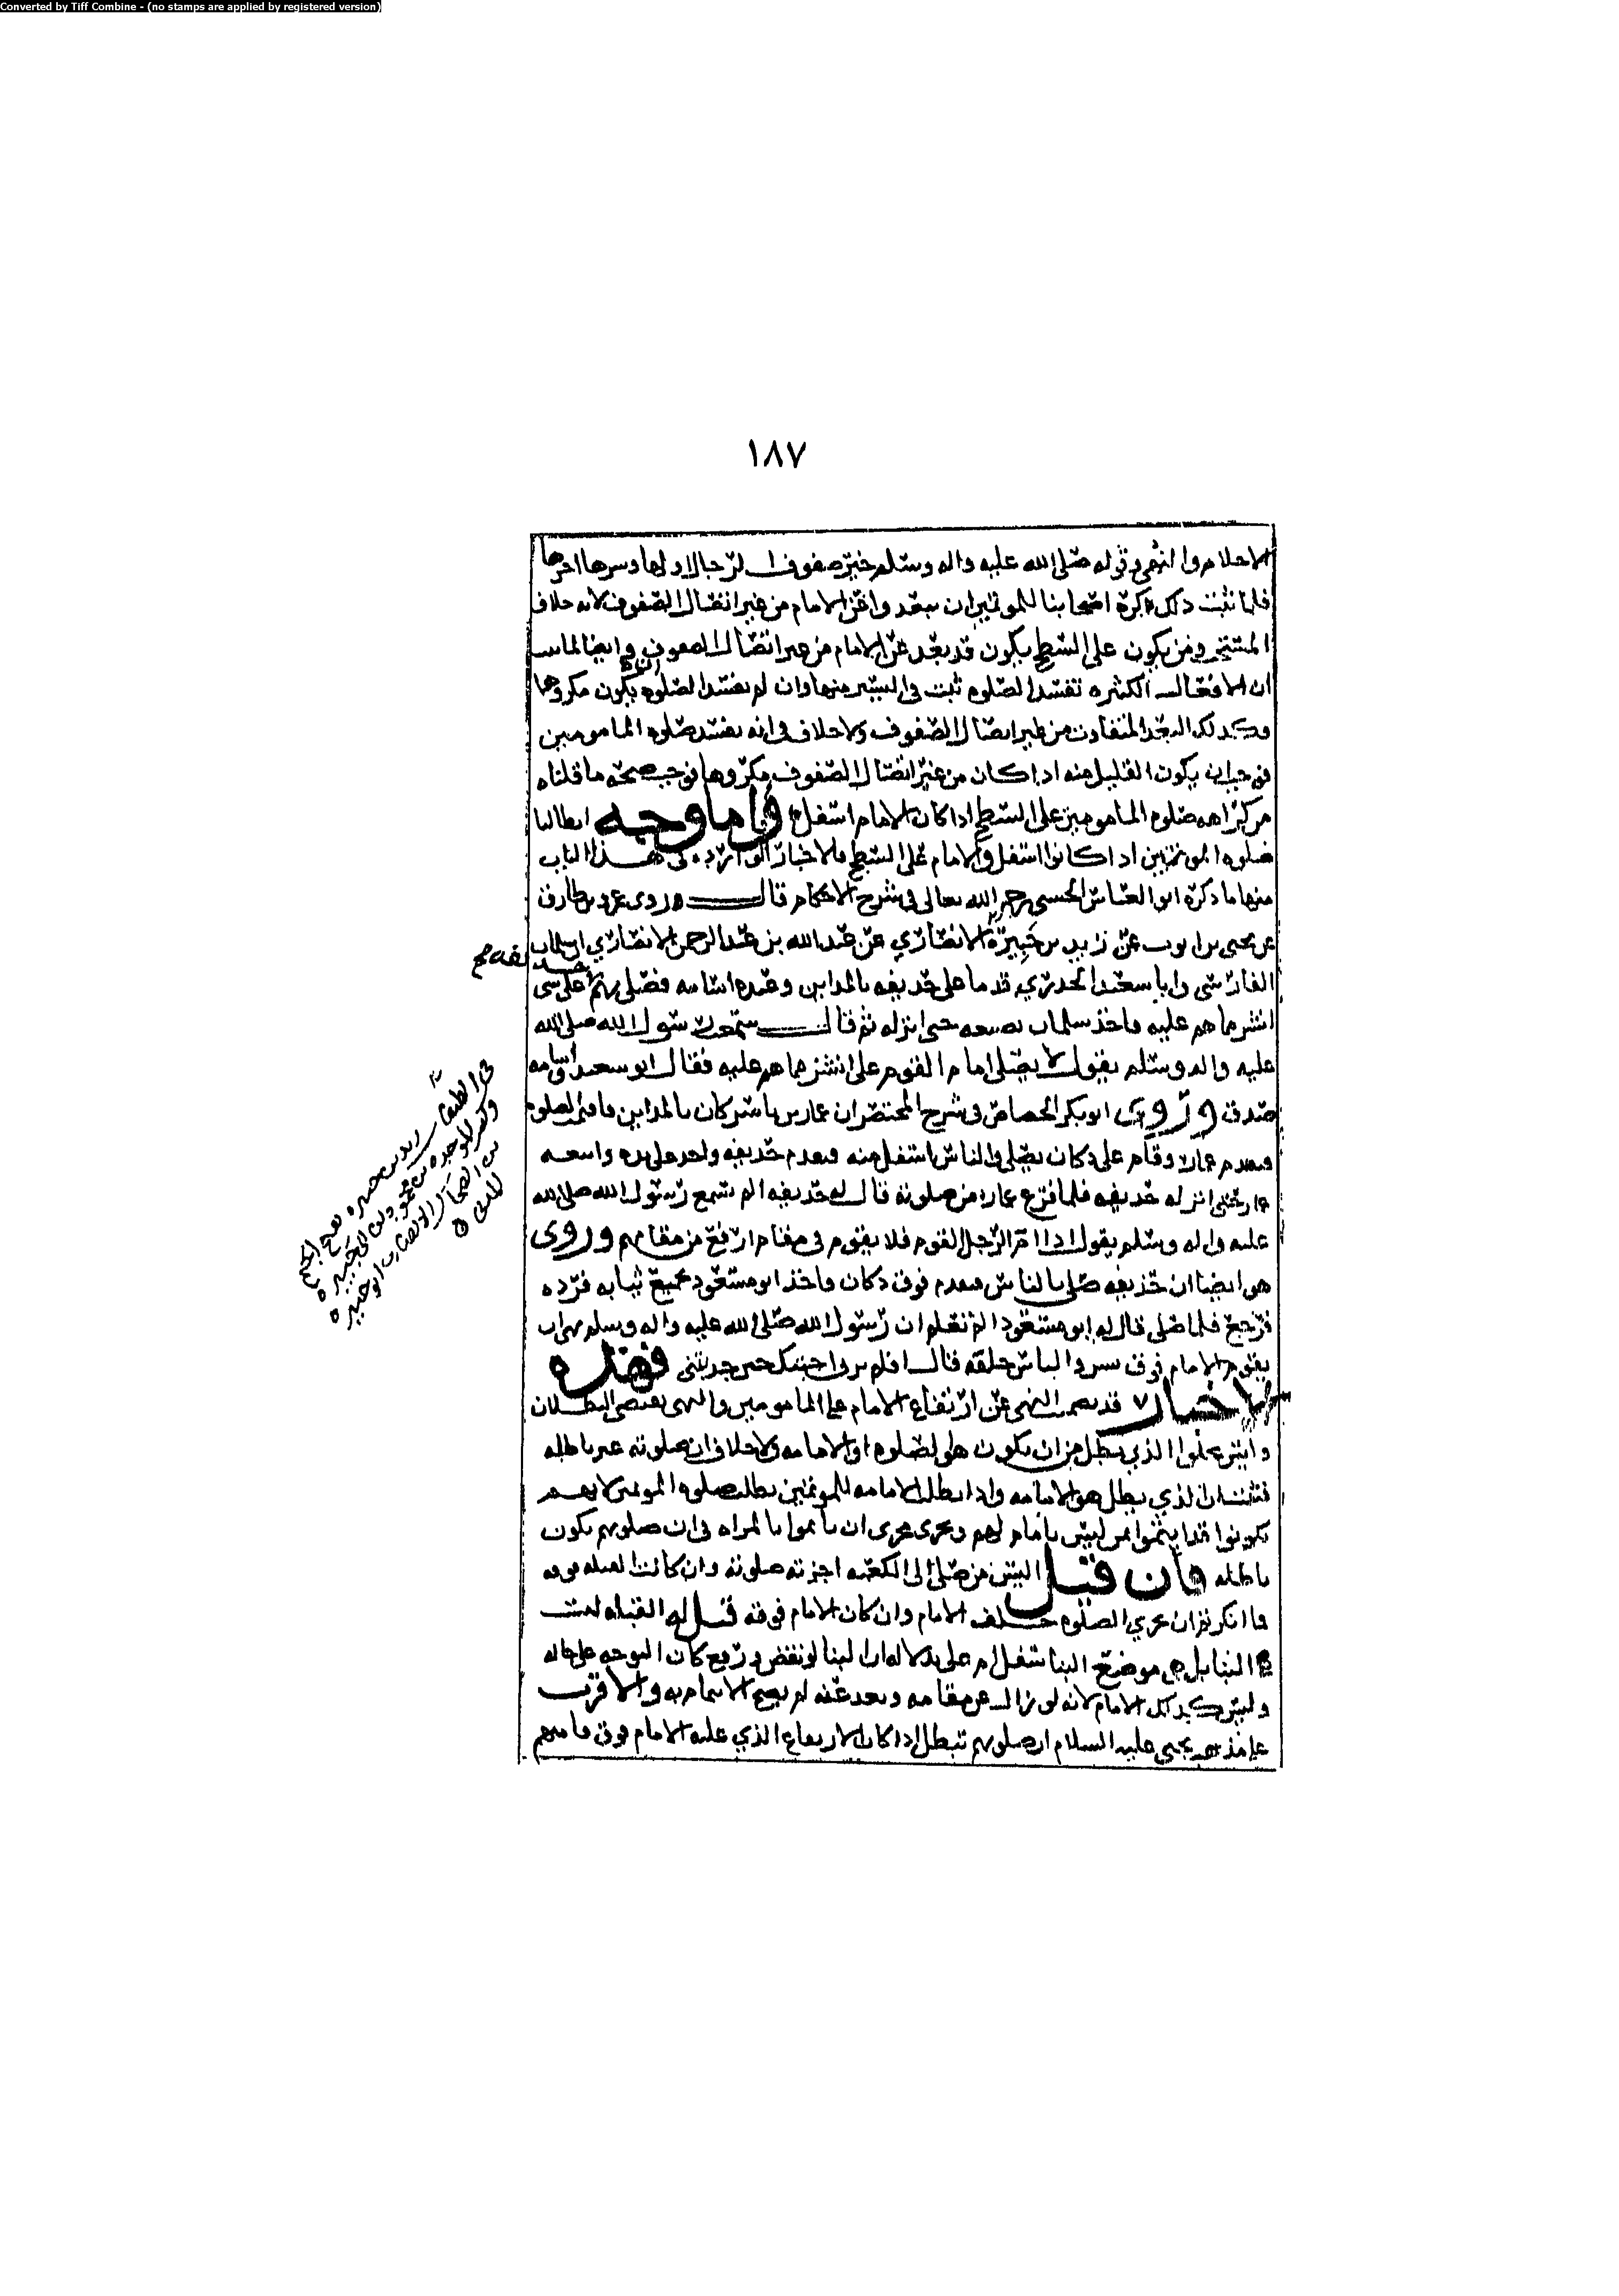 Converted by Tiff Combine - (no stamps are applied by registered version)
١٨٧
الاحلام والنهى وقوله صلى الله عليه واله وسلم خير صفوف الرجال اولها وشرها اخرها
فلما ثبت ذلك كره اصحابنا للموتمين ان يبعدوا عن الامام من غير اتصال الصفوف لانه خلاف
المستحب ومن يكون على السطح يكون قد بعد عن الامام من غير اتصال الصفوف وايضا لما ثبت
ان الافعال الكثيره تفسد الصلوه ثبت في اليسير منها وان لم يفسد الصلوه ان يكون مكروها
وكذلك البعد المتفاوت من غير اتصال الصفوف ولا خلاف في انه يفسد صلوه المامومين
فوجب ان يكون القليل منه اذا كان من غير اتصال الصفوف مكروها فوجب صحه ما قلناه
من كراهه صلوه المامومين على السطح اذا كان الامام اسفل واما وجه ابطالنا
صلوه الموتمين اذا كانوا اسفل والامام على السطح فللاخبار الوارده في هذا الباب
منها ما ذكره ابو العباس الحسني رحمه الله تعالى في شرح الاحكام قال وروى عمرو بن طارق
عن يحيى بن ايوب عن زيد بن جبيرة الانصاري عن عبد الله بن عبد الرحمن الانصاري ان سلمان
الفارسي وابا سعيد الخدري قدما على حذيفه بالمداين وعنده اسامه فصلى بهم على شي
انشز مما هم عليه فاخذ سلمان بضبعه حتى انزله ثم قال سمعت رسول الله صلى الله
عليه واله وسلم يقول لا يصلي امام القوم على انشز مما هم عليه فقال ابو سعيد واسامه
صدق وروى ابو بكر الجصاص في شرح المختصر ان عمار بن ياسر كان بالمداين فاقيمت الصلوه
فتقدم عمار وقام على دكان يصلي والناس اسفل منه فتقدم حذيفه واخذ على يده واتبعه
عمار حتى انزله حذيفه فلما فرغ عمار من صلوته قال له حذيفه الم تسمع رسول الله صلى الله
عليه واله وسلم يقول اذا ام الرجل القوم فلا يقوم في مقام ارفع من مقامهم وروى
هو ايضا ان حذيفه صلى بالناس فتقدم فوق دكان فاخذ ابو مسعود بمجمع ثيابه فرده
فرجع فلما صلى قال له ابو مسعود الم تعلم ان رسول الله صلى الله عليه واله وسلم نهى ان
يقوم الامام فوق والناس خلفه قال افلم جذبتني فهذه
الاخبار قد تضمنت النهي عن ارتفاع الامام على المامومين والنهي يقتضي البطلان
وليس يخلوا الذي يبطل من ان يكون هو الصلوه او الامامه ولا خلاف ان صلوته غير باطله
فثبت ان الذي يبطل هو الامامه واذا بطلت الامامه للموتمين بطلت صلوه الموتمين لانهم
يكونوا قد ايتموا بمن ليس بامام لهم وجرى مجرى ان ياتموا بالمراه في ان صلوتهم يكون
باطله فان قيل اليس من صلى الى الكعبه اجزته صلوته وان كانت القبله فوقه
فما انكرتم ان يجزي الصلوه خلف الامام وان كان الامام فوقه قيل له القبله ليست
هي البنا بل هي موضع البنا اسفل ام على بدلاله ان البنا لو نقض ورفع كان التوجه على حاله
وليس كذلك الامام لانه لو زال عن مقامه وبعد عنه لم يصح الايتمام به والاقرب
على مذهب يحيى عليه السلام ان صلوتهم تبطل اذا كان الارتفاع الذي عليه الامام فوق قامتهم
في الطبقات زيد بن جبيره بفتح الجيم
وكسر الموحده بن محمود بن ابي جبيره
بن الضحاك الانصاري ابو جبيره
المدني